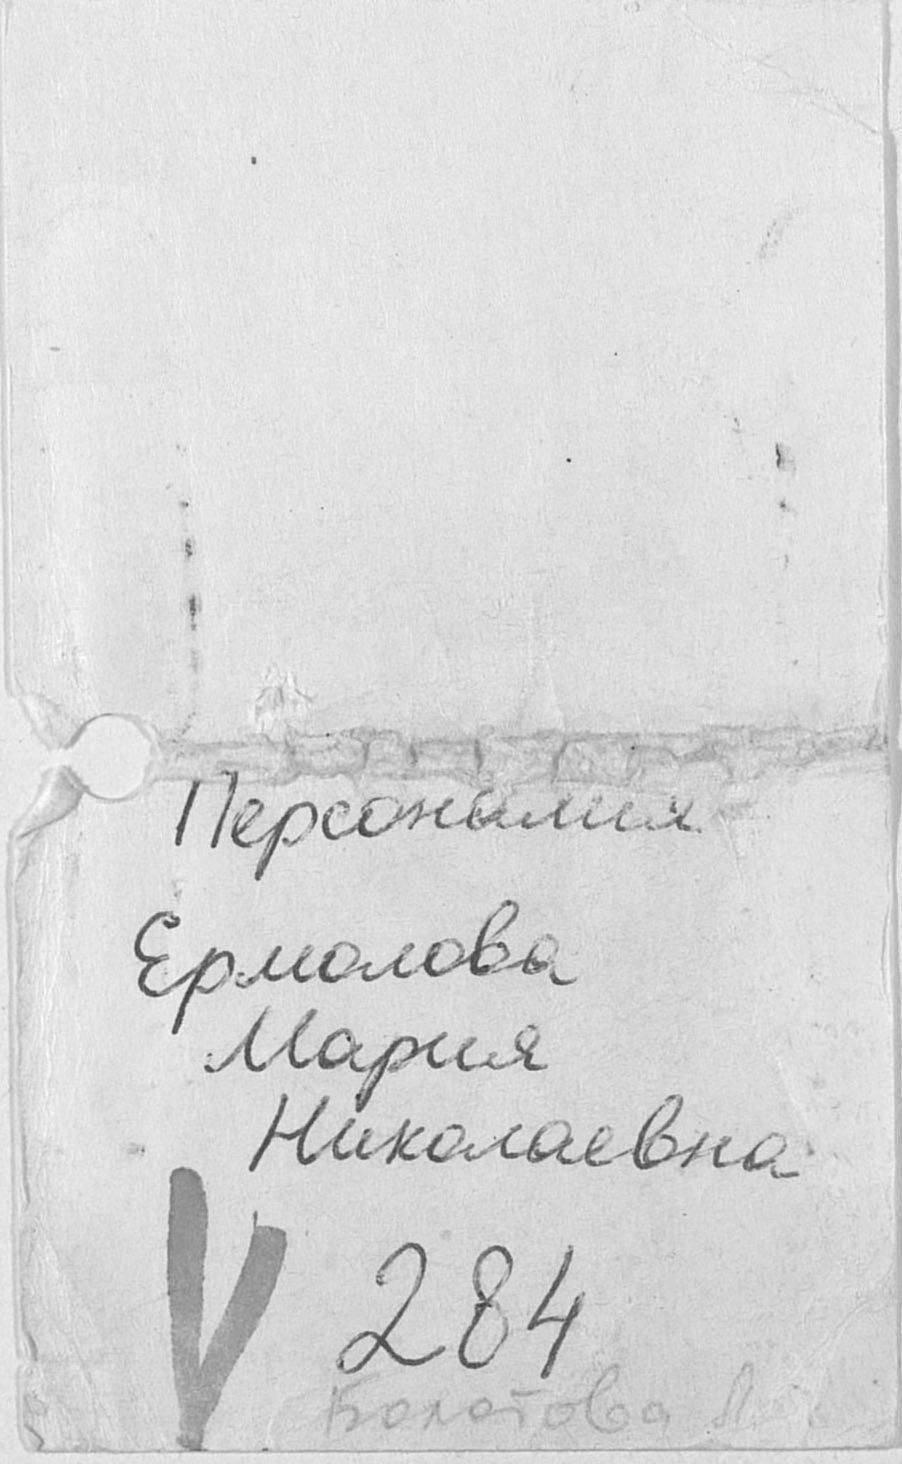 Персоналия
Ермолова
Мария
Николаевна
V 284
Болотова